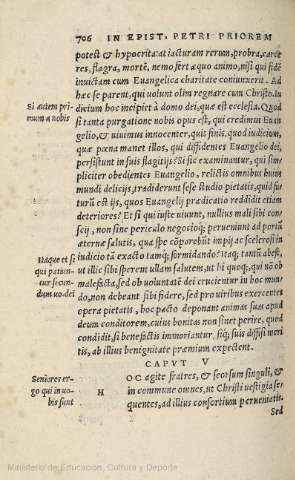 706 IN EPIST. PETRI PRIOREM
potest & hypocrita: at iacturam rerum, probra, carce
res, flagra, mortē, nemo fert æquo animo, nisi qui fidē
inuictam cum Euangelica charitate coniunxerit. Ad
hæc se parent, qui uolunt olim regnare cum Christo. Iu
Si autem pri-
mum a nobis
dicium hoc incipit à domo dei, quæ est ecclesia. Quod
si tanta purgatione nobis opus est, qui credimus Euan
gelio, & uiuimus innocenter, quit finis, quod iudicium,
quæ pœna manet illos, qui diffidentes Euangelio dei,
persistunt in suis flagitijs? Si sic examinantur, qui sim-
pliciter obedientes Euangelio, relictis omnibus huius
mundi delicijs, tradiderunt sese studio pietatis, quid fu
turū est ijs, quos Euangelij prædicatio reddidit etiam
deteriores? Et si qui iuste uiuunt, nullius mali sibi con-
scij, non sine periculo negocioq; perueniunt ad portū
æternæ salutis, qua spe cōparebūt impij ac scelerosi in
Itaque et si
qui patiun-
tur secun-
dum uo. dei
iudicio tā exacto tamq; formidando? Itaq; tantū abest,
ut illic sibi sperem ullam salutem, ut hi quoq;, qui nō ob
malefacta, sed ob uoluntatē dei cruciantur in hoc mun
do, non debeant sibi fidere, sed pro uiribus exercentes
opera pietatis, hoc pacto deponant animas suas apud
deum conditorem, cuius bonitas non sinet perire, quod
condidit, si benefactis immoriantur, siq; suis diffisi meri
tis, ab illius benignitate præmium expectent.
CAPVT V
Seniores er-
go qui in uo-
bis sunt
H OC agite fratres, & seorsum singuli, &
in commune omnes, ut Christi uestigia se-
quentes, ad illius consortium perueniatis.
Sed
Ministerio de Educación, Cultura y Deporte